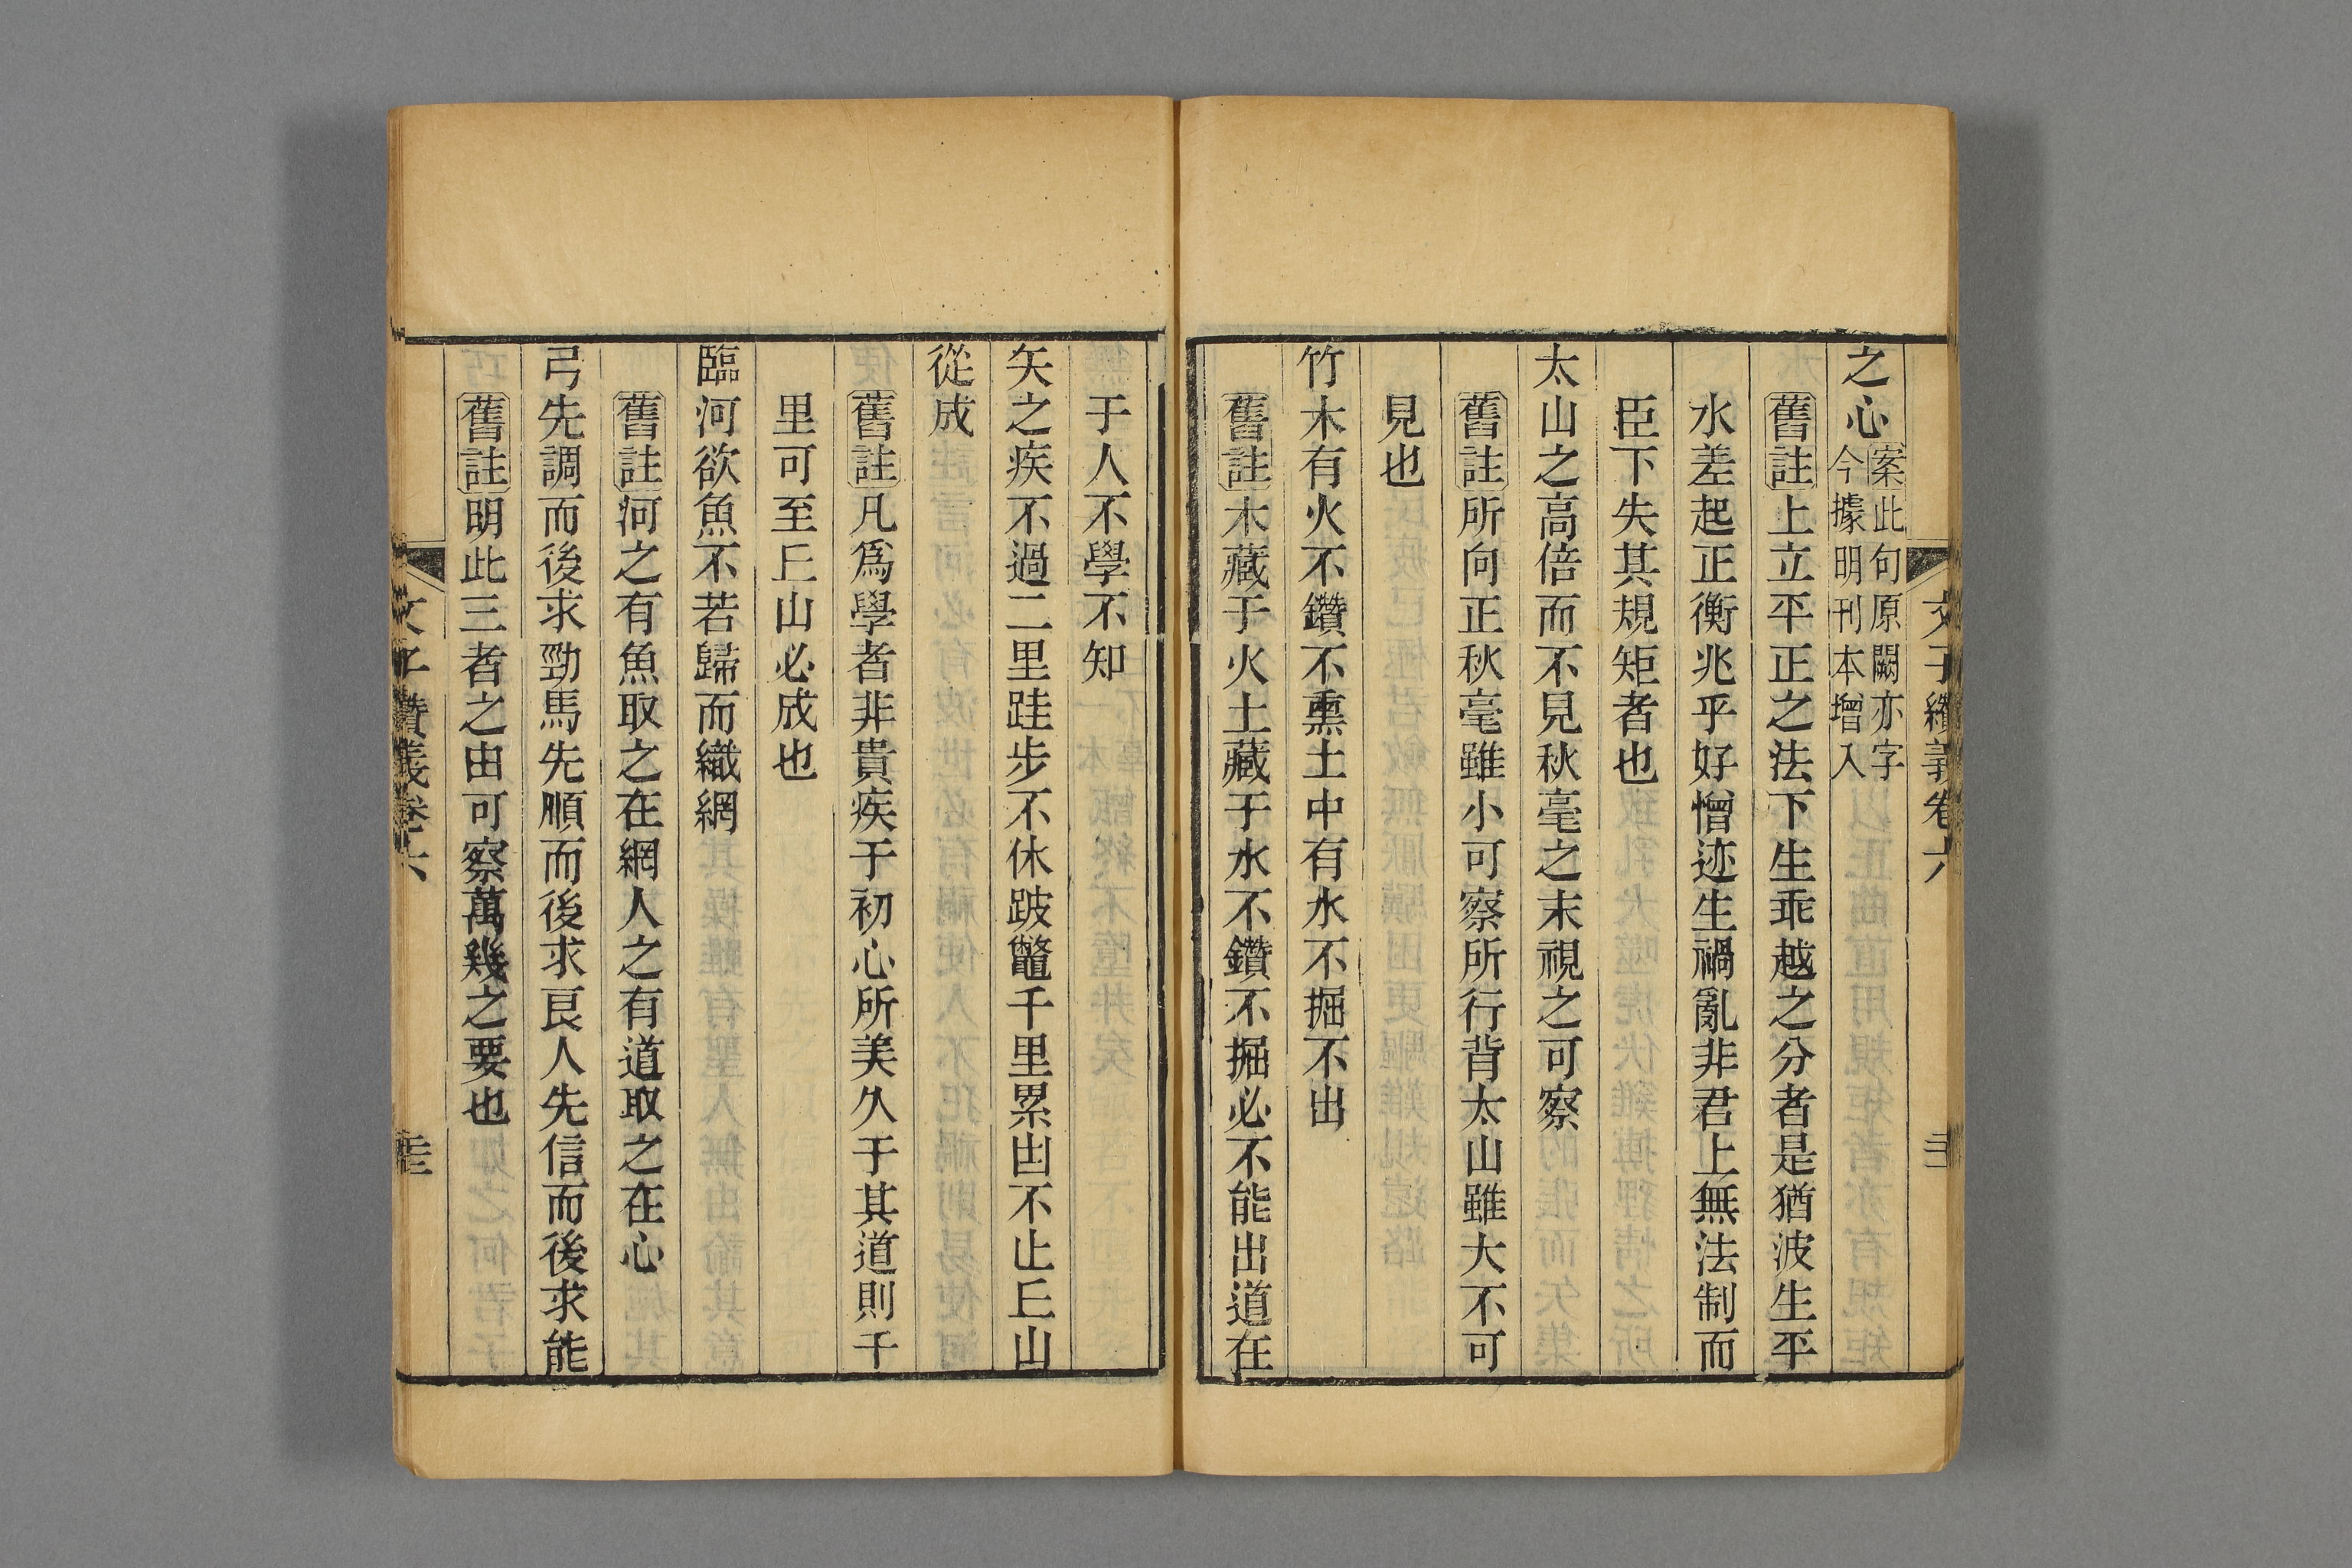 文子纘義卷六
之心案此句原闕亦字今據明刊本增入
舊註上立平正之法下生乖越之分者是猶波生平
水差起正衡兆乎好憎迹生禍亂非君上無法制而
臣下失其規矩者也
太山之高倍而不見秋毫之末視之可察
舊註所向正秋毫雖小可察所行背太山雖大不可
見也
竹木有火不鑽不熏土中有水不掘不出
舊註木藏于火土藏于水不鑽不掘必不能出道在
于人不學不知
矢之疾不過二里跬步不休跛鼈千里累凷不止𠀉山
從成
舊註凡爲學者非貴疾于初心所美久于其道則千
里可至𠀉山必成也
臨河欲魚不若歸而織網
舊註河之有魚取之在網人之有道取之在心
弓先調而後求勁馬先順而後求良人先信而後求能
舊註明此三者之由可察萬幾之要也
文子纘義卷六